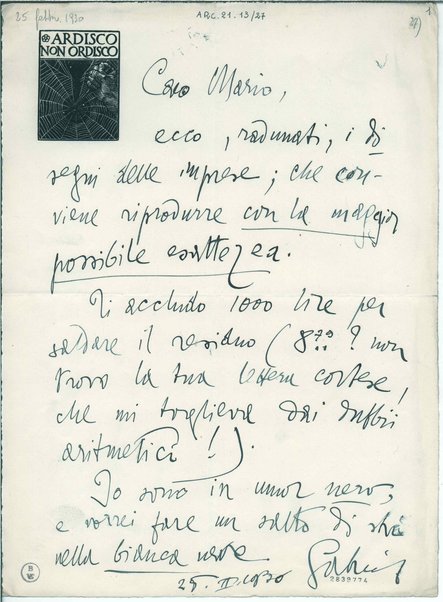 25 febbr. 1930
APC. 21. 13/27
27)
ARDISCO
NON ORDISCO
Caro Mario,
ecco, radunati, i di
segni delle imprese; che con-
viene riprodurre con la maggior
possibile esattezza.
Ti accludo 1000 lire per
saldare il residuo (879? non
trovo la tua lettera cortese,
che mi toglieva dai dubbii
aritmetici!).
Io sono in umor nero,
e vorrei fare un salto di
nella bianca neve
25. II. 1930
Gabri
2839774